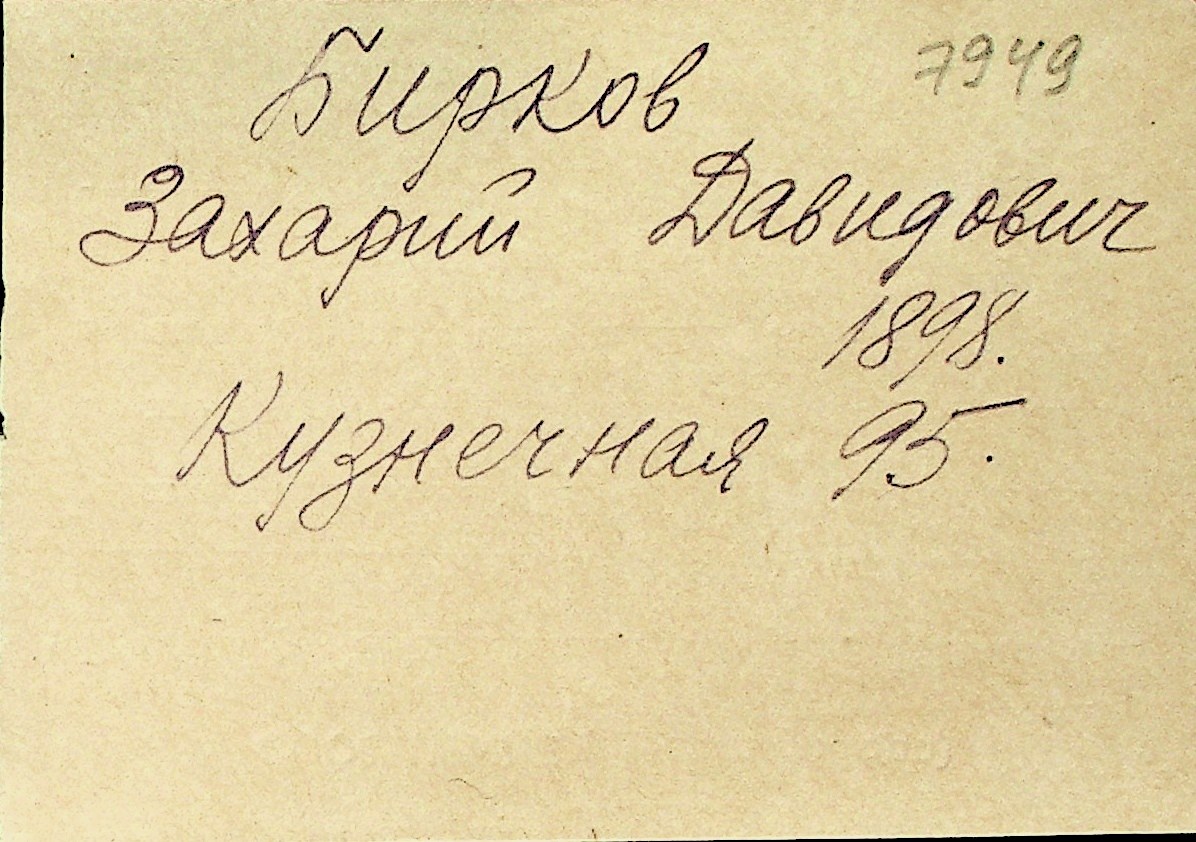 7949
Бирков
Захарий Давидович
1898.
Кузнечная 95.